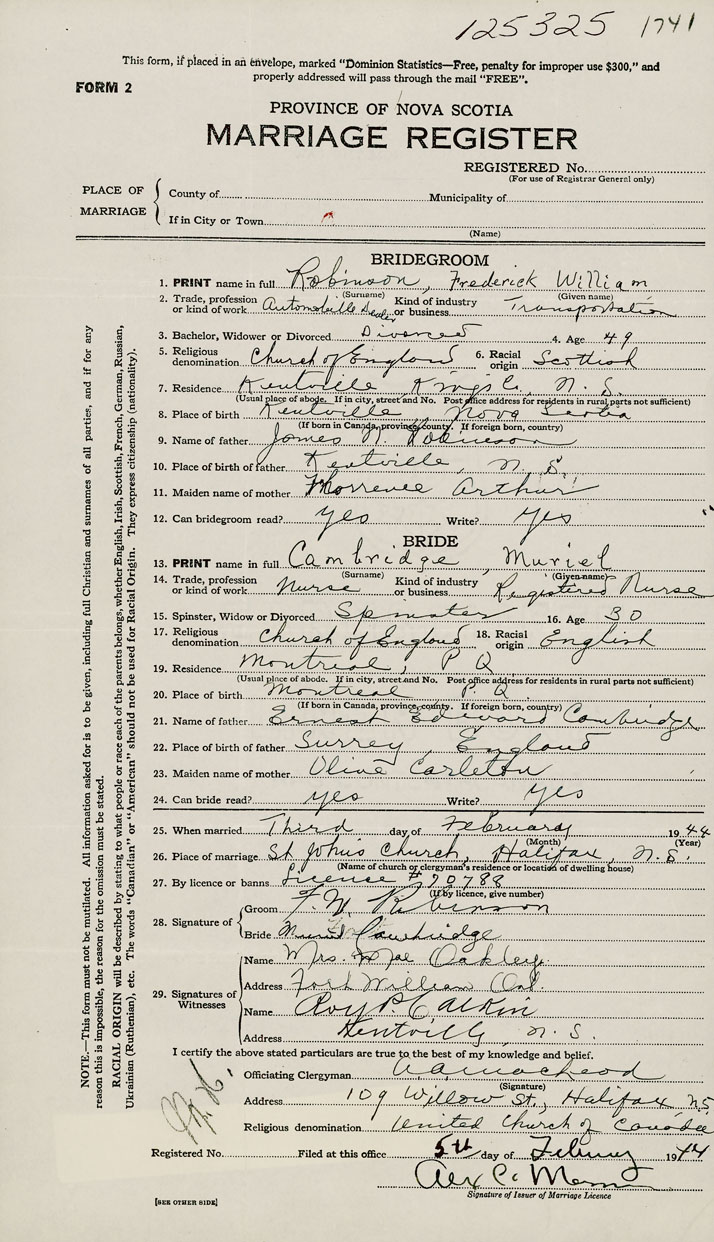 125325 1741
This form, if placed in an envelope, marked "Dominion Statistics—Free, penalty for improper use $300," and
properly addressed will pass through the mail "FREE".
FORM 2
PROVINCE OF NOVA SCOTIA
MARRIAGE REGISTER
REGISTERED No.
(For use of Registrar General only)
PLACE OF MARRIAGE
County of Municipality of
If in City or Town
(Name)
BRIDEGROOM
1. PRINT name in full Robinson, Frederick William
(Surname) (Given name)
2. Trade, profession or kind of work Automobile Dealer Kind of industry or business Transportation
3. Bachelor, Widower or Divorced Divorced 4. Age 49
5. Religious denomination Church of England 6. Racial origin Scottish
7. Residence Kentville Kings Co. N. S.
(Usual place of abode. If in city, street and No. Post office address for residents in rural parts not sufficient)
8. Place of birth Kentville, Nova Scotia
(If born in Canada, province, county. If foreign born, country)
9. Name of father James N. Robinson
10. Place of birth of father Kentville, N. S.
11. Maiden name of mother Arthur
12. Can bridegroom read? yes Write? yes
BRIDE
13. PRINT name in full Cambridge, Muriel
(Surname) (Given name)
14. Trade, profession or kind of work Nurse Kind of industry or business Registered Nurse
15. Spinster, Widow or Divorced Spinster 16. Age 30
17. Religious denomination Church of England 18. Racial origin English
19. Residence Montreal P Q
(Usual place of abode. If in city, street and No. Post office address for residents in rural parts not sufficient)
20. Place of birth Montreal P. Q.
(If born in Canada, province, county. If foreign born, country)
21. Name of father Ernest Edward Cambridge
22. Place of birth of father Surrey, England
23. Maiden name of mother Olive Carleton
24. Can bride read? yes Write? yes
25. When married Third day of February 1944
(Month) (Year)
26. Place of marriage St John's Church, Halifax, N.S.
(Name of church or clergyman's residence or location of dwelling house)
27. By licence or banns License #70788
(If by licence, give number)
28. Signature of
Groom F. W. Robinson
Bride Muriel Cambridge
29. Signatures of Witnesses
Name Mrs. Mae Oakley
Address Fort William Ont.
Name Roy P. Calkin
Address Kentville, N. S.
I certify the above stated particulars are true to the best of my knowledge and belief.
Officiating Clergyman
(Signature)
Address 109 Willow St., Halifax, NS
Religious denomination United Church of Canada
Registered No. Filed at this office 5th day of February 1944
Signature of Issuer of Marriage Licence
[SEE OTHER SIDE]
NOTE.—This form must not be mutilated. All information asked for is to be given, including full Christian and surnames of all parties, and if for any
reason this is impossible, the reason for the omission must be stated.
RACIAL ORIGIN will be described by stating to what people or race each of the parents belongs, whether English, Irish, Scottish, French, German, Russian,
Ukrainian (Ruthenian), etc. The words "Canadian" or "American" should not be used for Racial Origin. They express citizenship (nationality).